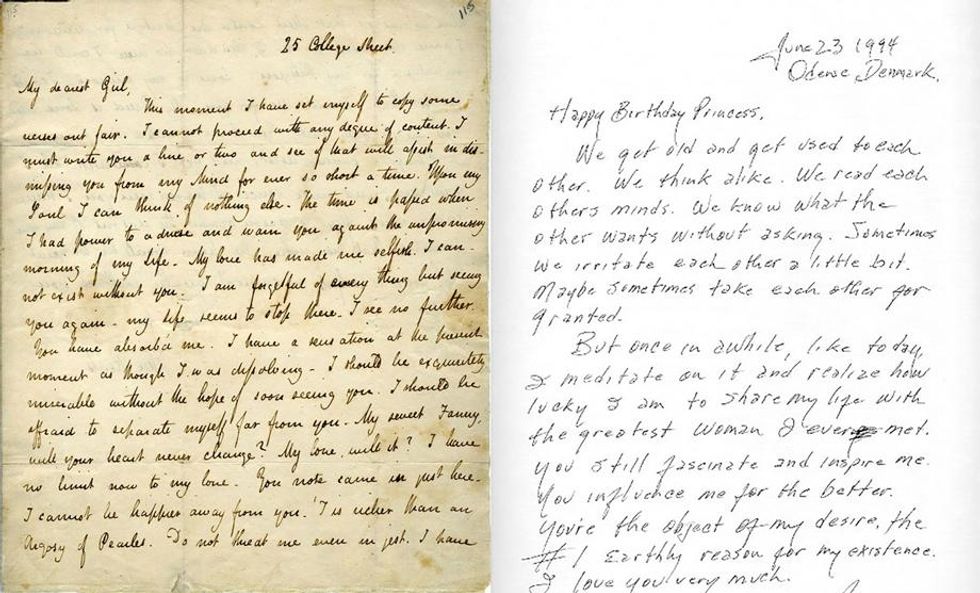 115
25 College Street.
My dearest Girl,
This moment I have set myself to copy some
verses out fair. I cannot proceed with any degree of content. I
must write you a line or two and see if that will assist in dis-
missing you from my Mind for ever so short a time. Upon my
Soul I can think of nothing else - The time is passed when
I had power to advise and warn you against the unpromising
morning of my Life - My love has made me selfish. I can-
not exist without you - I am forgetful of every thing but seeing
you again - my Life seems to stop there - I see no further.
You have absorb'd me. I have a sensation at the present
moment as though I was dissolving - I should be exquisitely
miserable without the hope of soon seeing you. I should be
affraid to separate myself far from you. My sweet Fanny,
will your heart never change? My love, will it? I have
no limit now to my love - You note came in just here -
I cannot be happier away from you - 'T is richer than an
Argosy of Pearles. Do not threat me even in jest. I have
June 23 1994
Odense Denmark.
Happy Birthday Princess,
We get old and get used to each
other. We think alike. We read each
others minds. We know what the
other wants without asking. Sometimes
we irritate each other a little bit.
Maybe sometimes take each other for
granted.
But once in awhile, like today,
I meditate on it and realize how
lucky I am to share my life with
the greatest woman I ever met.
You still fascinate and inspire me.
You influence me for the better.
You're the object of my desire, the
#1 Earthly reason for my existence.
I love you very much.